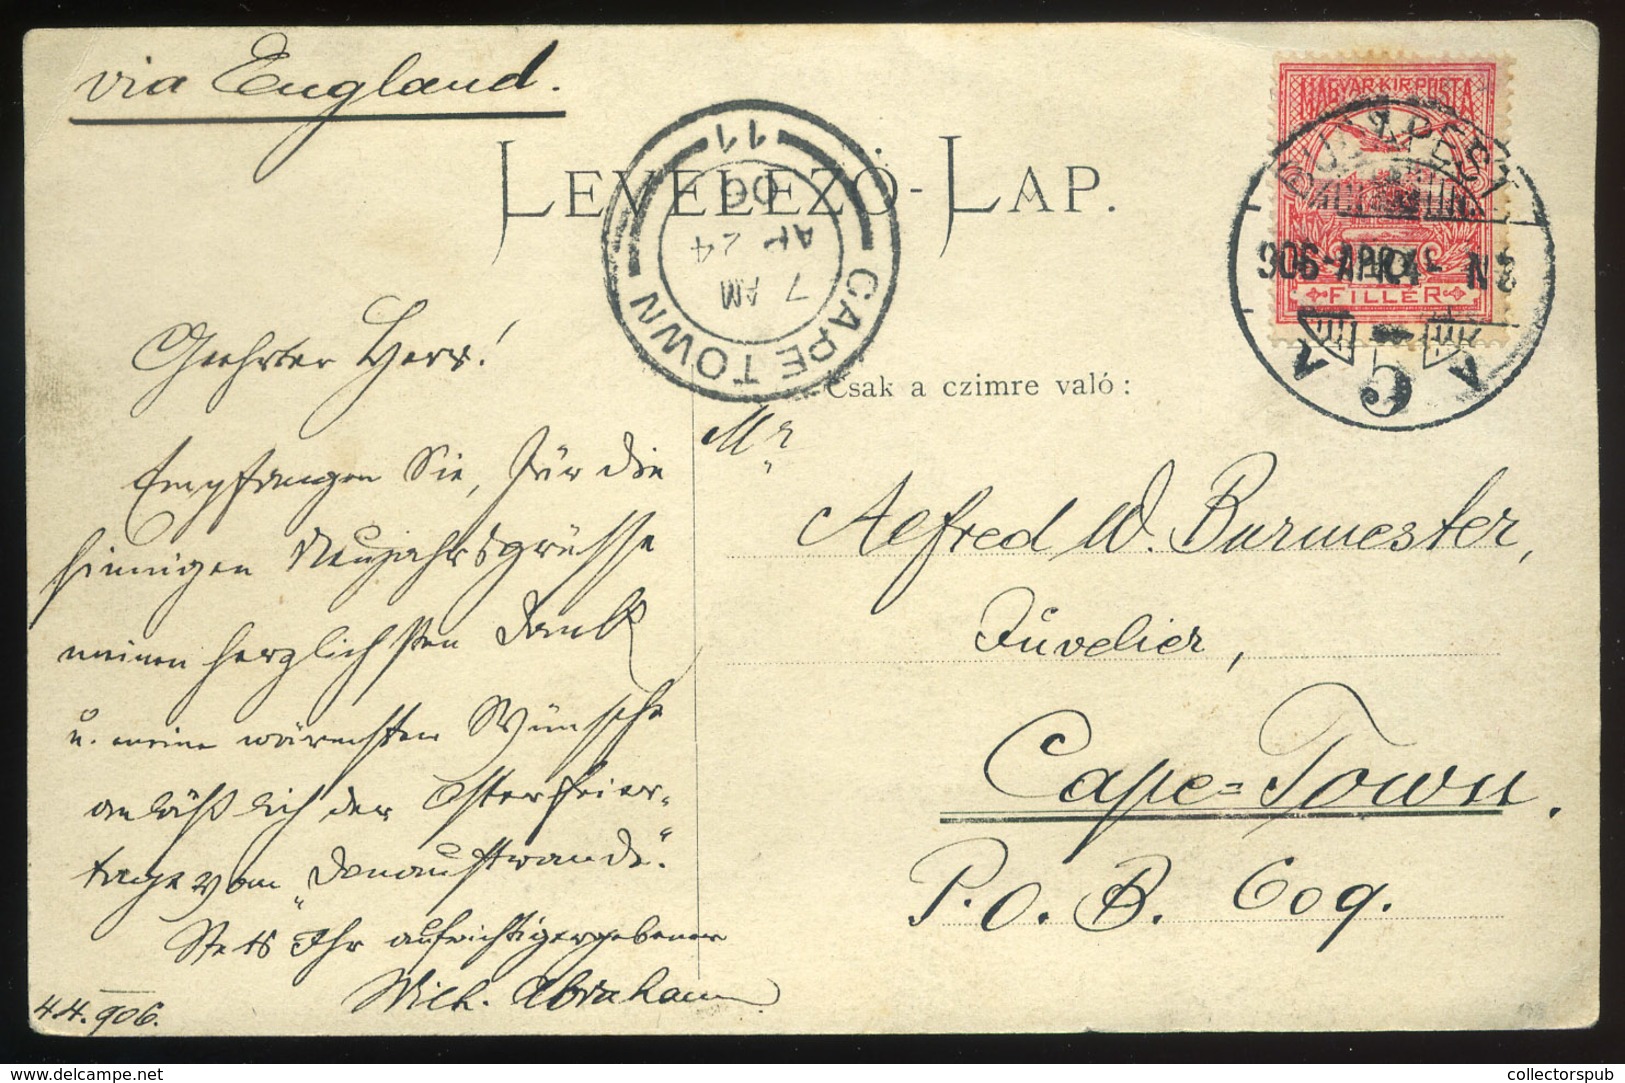 via England.
LEVELEZŐ-LAP.
MAGYAR·KIR·POSTA
FILLÉR
BUDAPEST
906 APR 4
5
CAPE TOWN
11
7 AM
AP 24
06
Csak a czimre való:
Geehrter Herr!
Empfangen Sie, für die
sinnigen Neujahrsgrüsse
meinen herzlichsten Dank
u. meine wärmsten Wünsche
anläßlich der Osterfeier-
tage vom „Donaustrande“.
Stets Ihr aufrichtigergebener
Wilh. Abraham
4.4.906.
Mr
Alfred W. Burmester,
Júvelier,
Cape=Town.
P.O.B. 609.
collectorspub